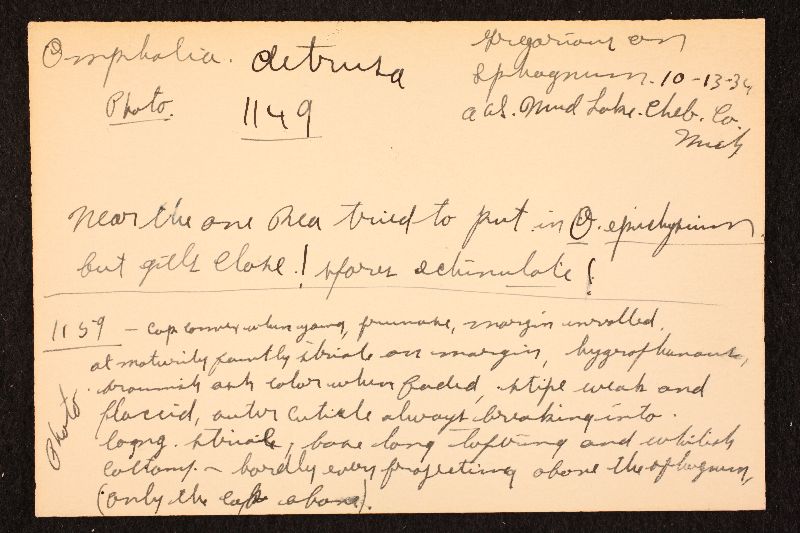 Omphalia. detrusa
Photo. 1149
gregarious on
Sphagnum. 10-13-34
Mud Lake. Cheb. Co.
Mich
near the one Rea tried to put in O. epichysium.
but gills close! spores echinulate!
1159 - Cap convex when young, pruinose, margin inrolled,
at maturity faintly striate on margin, hygrophanous,
brownish ash color when faded, stipe weak and
Photo
flaccid, outer cuticle always breaking into
long. striae, base long and whitish
cottony - hardly ever projecting above the sphagnum,
(only the cap above).